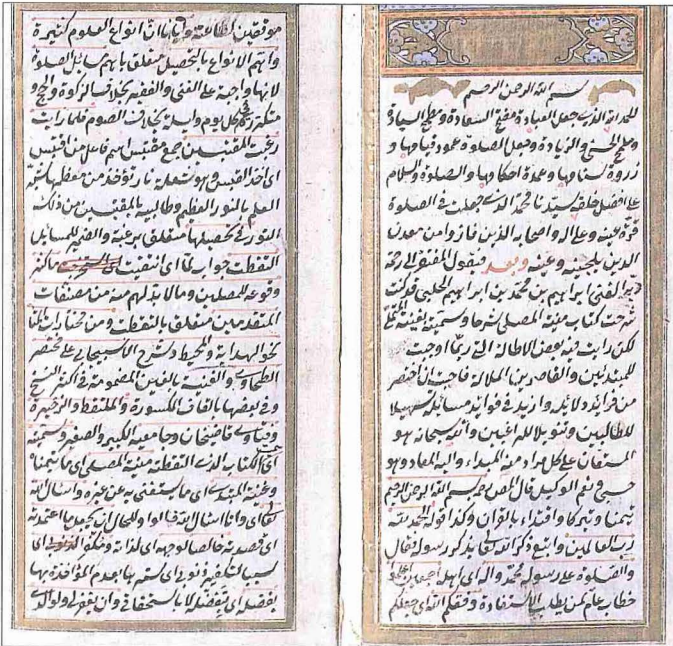 بسم الله الرحمن الرحيم
الحمد لله الذى جعل العبادة مفتح السعادة ومطمح السيادة
ومطمح الحسنى والزيادة وجعل الصلوة عمود قيامها و
زروة سنامها وعمدة احكامها والصلوة والسلام
على افضل خلقه سيدنا محمد الذى جعلت فى الصلوة
قرة عينه وعلى اله واصحابه الذين فازوا من معدن
الدين بلجينه وعينه وبعد فيقول المفتقر الى رحمة
ربه الغنى ابراهيم بن محمد بن ابراهيم الحلبى قد كنت
شرحت كتاب منية المصلى شرحا وسميته بغنية المتملى
لكن رايت فيه بعض الاطالة التى ربما اوجبت
للمبتدئين والقاصرين الملالة فاحببت ان اختصر
من فرائد دلائله وازيد فى فوائد مسائله تسهيلا
للطالبين وتنويلا للراغبين والله سبحانه هو
المستعان على كل مراد منه المبداء واليه المعاد وهو
حسبى ونعم الوكيل قال المص بسم الله الرحمن الرحيم
تيمنا وتبركا واقتداء بالقران وكذا قوله الحمد لله
رب العالمين واتبع ذكر الله تعالى بذكر رسوله فقال
والصلوة على رسوله محمد واله اى اهله اجمعين اعلموا
خطاب عام لمن يطلب الاستفادة وفقكم الله اى جعلكم
موفقين لطاعته وايانا ان انواع العلوم كثيرة
واهم الانواع بالتحصيل متعلق باهم مسائل الصلوة
لانها واجبة على الغنى والفقير بخلاف الزكوة والحج و
متكررة فى كل يوم وليلة بخلاف الصوم فلما رايت
رغبت المقتبسين جمع مقتبس اسم فاعل من اقتبس
اى اخذ القبس وهو شعلة نار تؤخذ من معظمها شبه
العلم بالنور العظيم وطالبيه بالمقتبسين من ذلك
النور فى تحصيلها متعلق برغبة والضمير للمسائل
التقطت جواب لما اى انتقيت ما كثر
وقوعه للمصلين وما لا بد لهم منه من مصنفات
المتقدمين متعلق بالتقطت ومن مختارات المتا
نحو الهداية والمحيط وشرح الاسبيجابى على مختصر
الطحاوى والغنية بالغين المضمومة فى اكثر النسخ
وفى بعضها بالقاف المكسورة والملتقط والزخيرة
وفتاوى قاضيخان وجامعيه الكبير والصغير وسميته
اى الكتاب الذى التقطته منية المصلى اى ما يتمناه
وغنية المبتدى اى ما يستغنى به عن غيره واسال الله
تعالى اى وانا اسال الله فالواو للحال ان يجعل ما اعتمدته
اى قصدته خالصا لوجهه اى لذاته اى
سببا لتكفير ذنوبى اى سترها بعدم المؤاخذة بها
بفضله اى بتفضله لا باستحقاقى وان يغفر لى ولوالدى